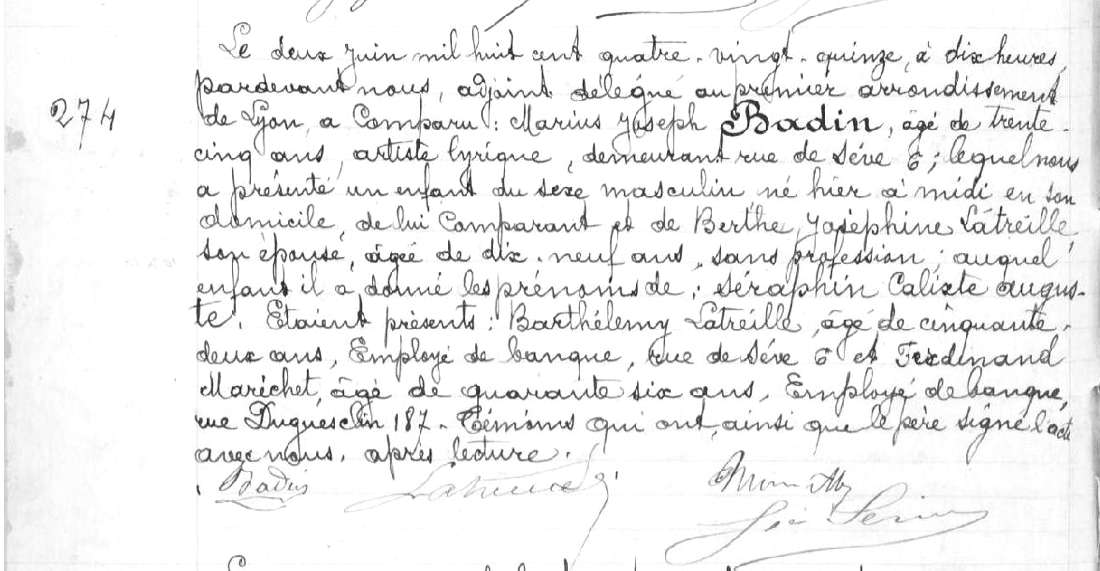 274
Le deux juin mil huit cent quatre-vingt-quinze, à dix heures,
pardevant nous, adjoint délégué au premier arrondissement
de Lyon, a Comparu : Marius Joseph Badin, âgé de trente-
cinq ans, artiste lyrique, demeurant rue de Séve 6 ; lequel nous
a présenté un enfant du sexe masculin, né hier à midi en son
domicile, de lui Comparant et de Berthe Joséphine Latreille,
son épouse, âgée de dix-neuf ans, sans profession ; auquel
enfant il a donné les prénoms de : Séraphin Calixte Augus-
te. Etaient présents : Barthélemy Latreille, âgé de cinquante-
deux ans, Employé de banque, rue de Séve 6 et Ferdinand
Maréchet, âgé de quarante six ans, Employé de banque,
rue Duguesclin 187 - Témoins qui ont, ainsi que le père signé l'acte
avec nous, après lecture.
Badin Latreille